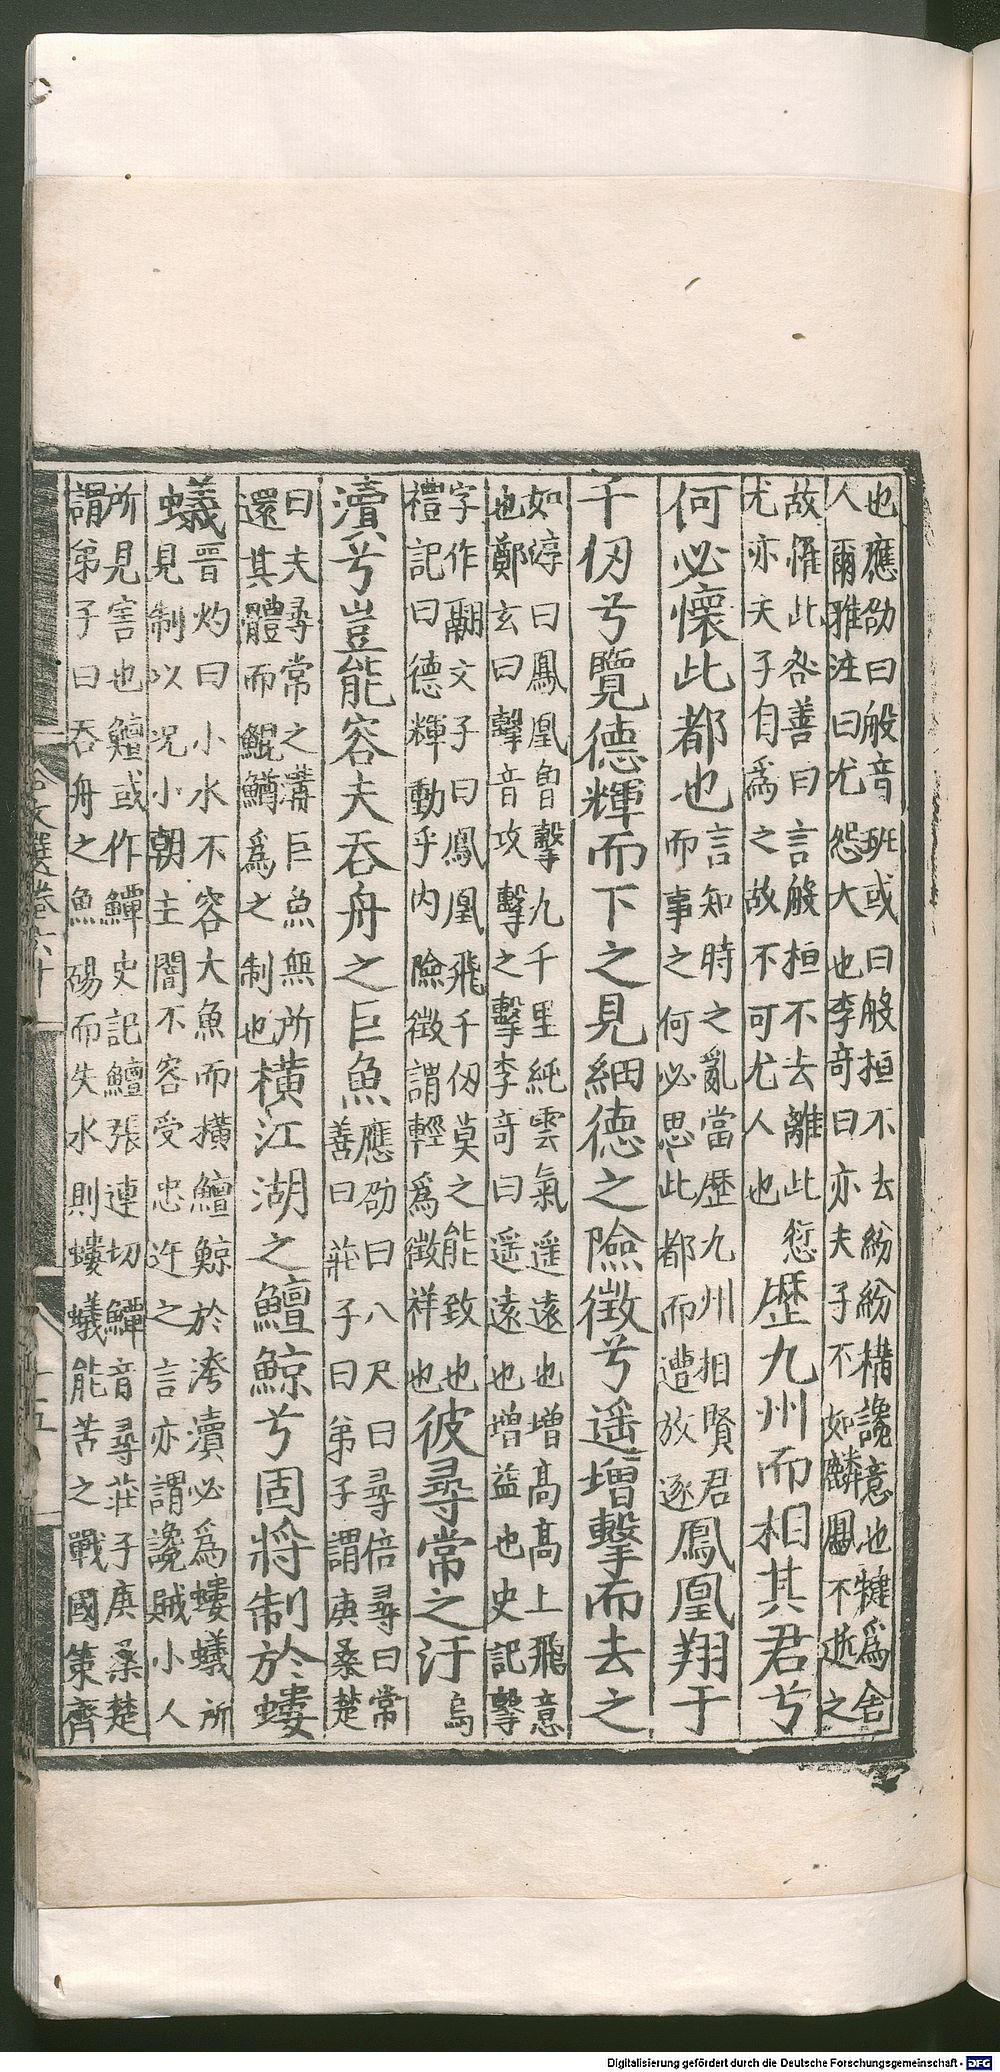 也應劭曰般音班或曰般桓不去紛紛構讒意也犍爲舍
人爾雅注曰尤怨大也李奇曰亦夫子不如麟鳳不逝之
故罹此咎善曰言般桓不去離此愆歷九州而相其君兮
尤亦夫子自爲之故不可尤人也
何必懷此都也言知時之亂當歷九州相賢君鳳凰翔于
而事之何必思此都而遭放逐
千仞兮覽德輝而下之見細德之險徵兮遥增擊而去之
如淳曰鳳凰曾擊九千里純雲氣遥遠也增高高上飛意
也鄭玄曰擊音攻擊之擊李奇曰遥遠也增益也史記擊
字作翮文子曰鳳凰飛千仞莫之能致也彼尋常之汙烏
禮記曰德輝動乎内險徵謂輕爲徵祥也
瀆兮豈能容夫吞舟之巨魚應劭曰八尺曰尋倍尋曰常
善曰莊子曰弟子謂庚桑楚
曰夫尋常之溝巨魚無所橫江湖之鱣鯨兮固將制於螻
還其體而鯢鰌爲之制也
蟻晋灼曰小水不容大魚而橫鱣鯨於洿瀆必爲螻蟻所
見制以况小朝主闇不容受忠迕之言亦謂讒賊小人
所見害也鱣或作鱏史記鱣張連切鱏音尋莊子庚桑楚
謂弟子曰吞舟之魚碭而失水則螻蟻能苦之戰國策齊
文選卷六十
十五
Digitalisierung gefördert durch die Deutsche Forschungsgemeinschaft - DFG